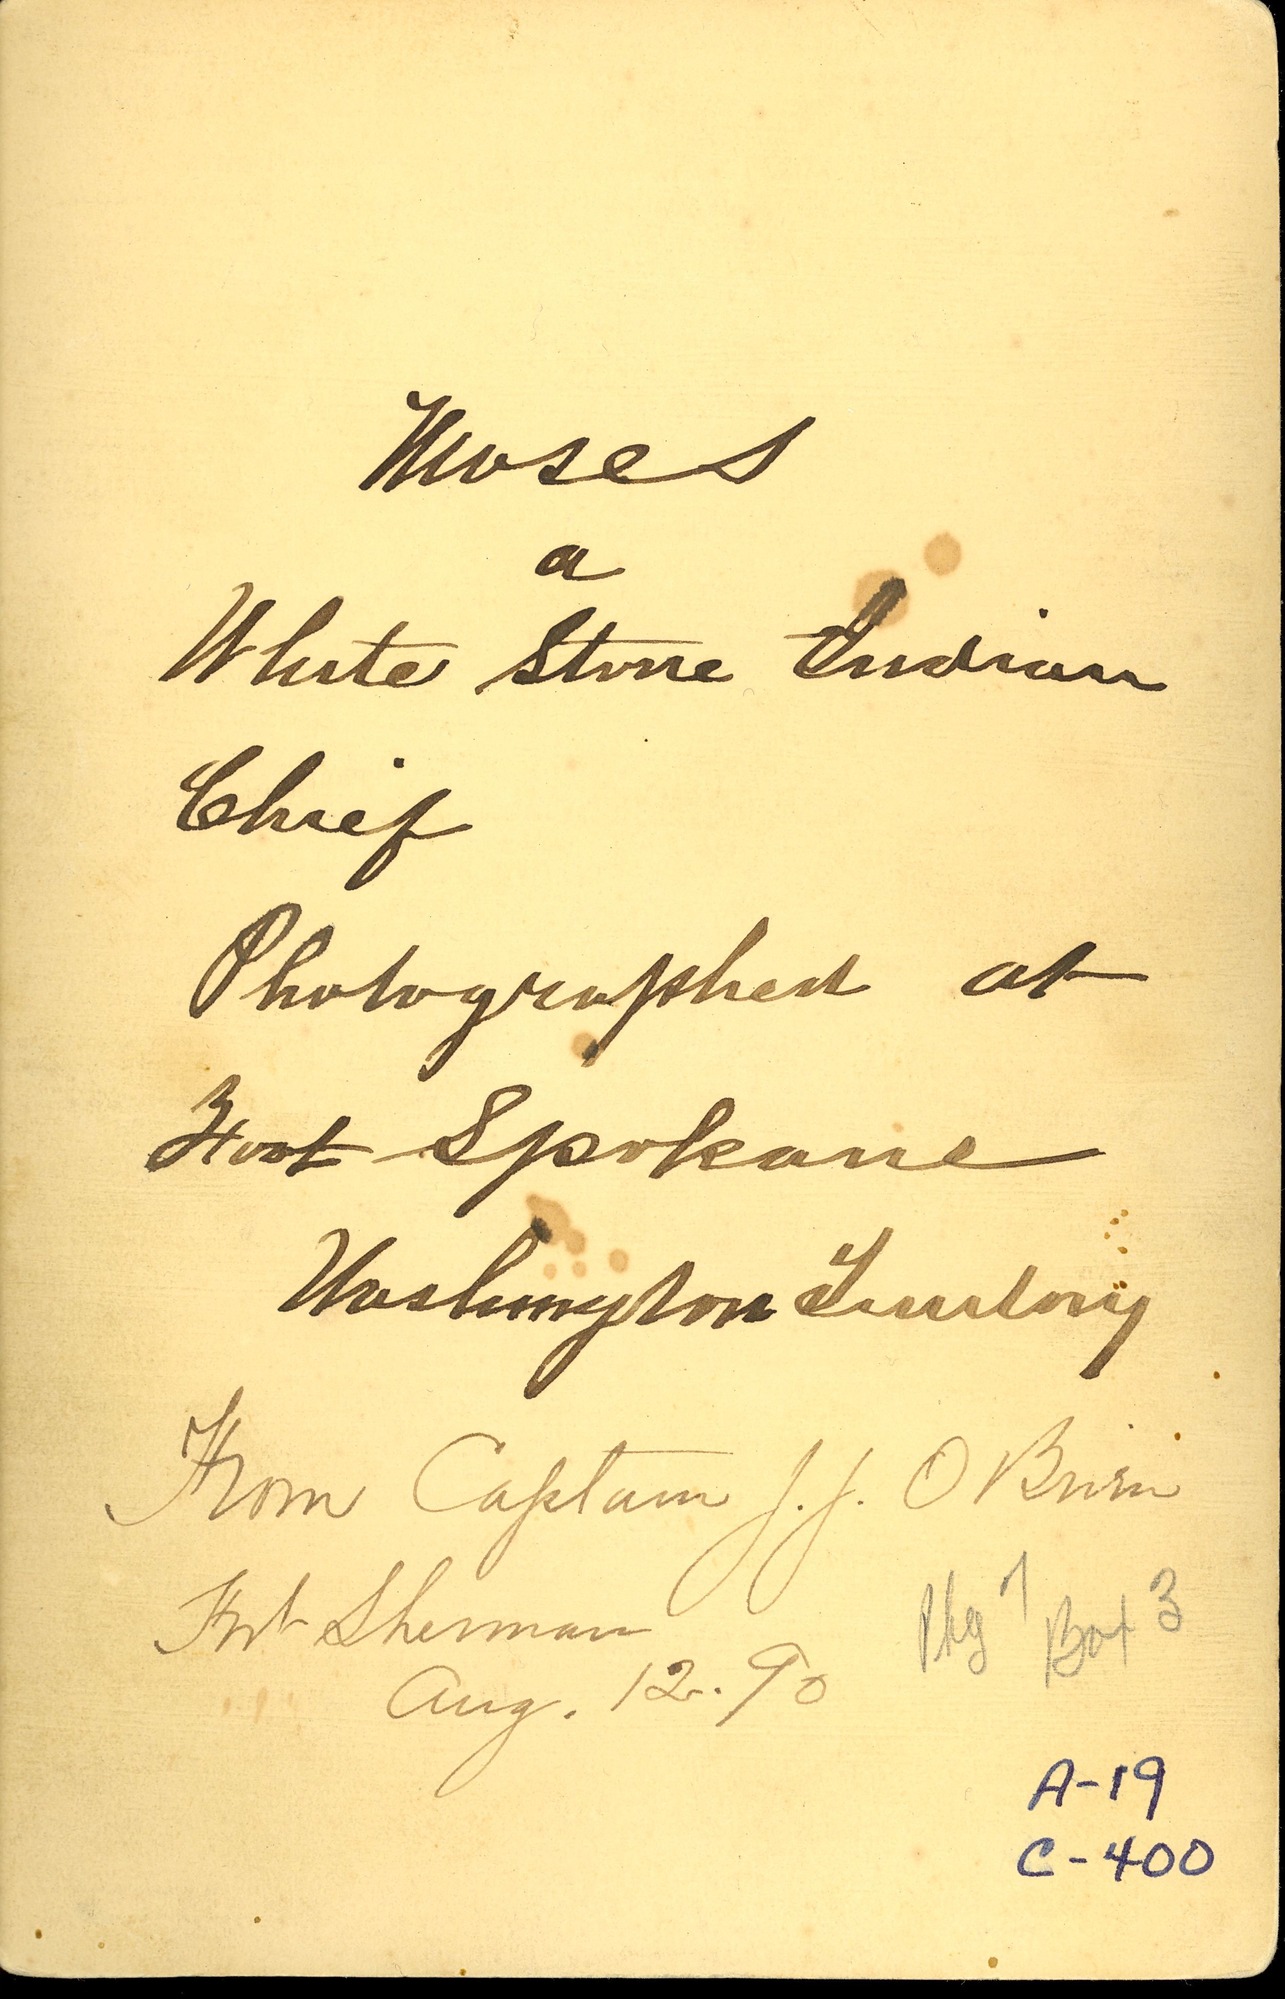 Moses
a
White Stone Indian
Chief
Photographed at
Fort Spokane
Washington Territory
From Captain J. J. O Brien
Fort Sherman
Aug. 12. 90
Pkg 7 Box 3
A-19
C-400